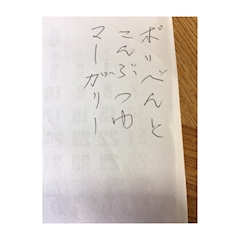 ポリベんと
こんぶつゆ
マーガリー